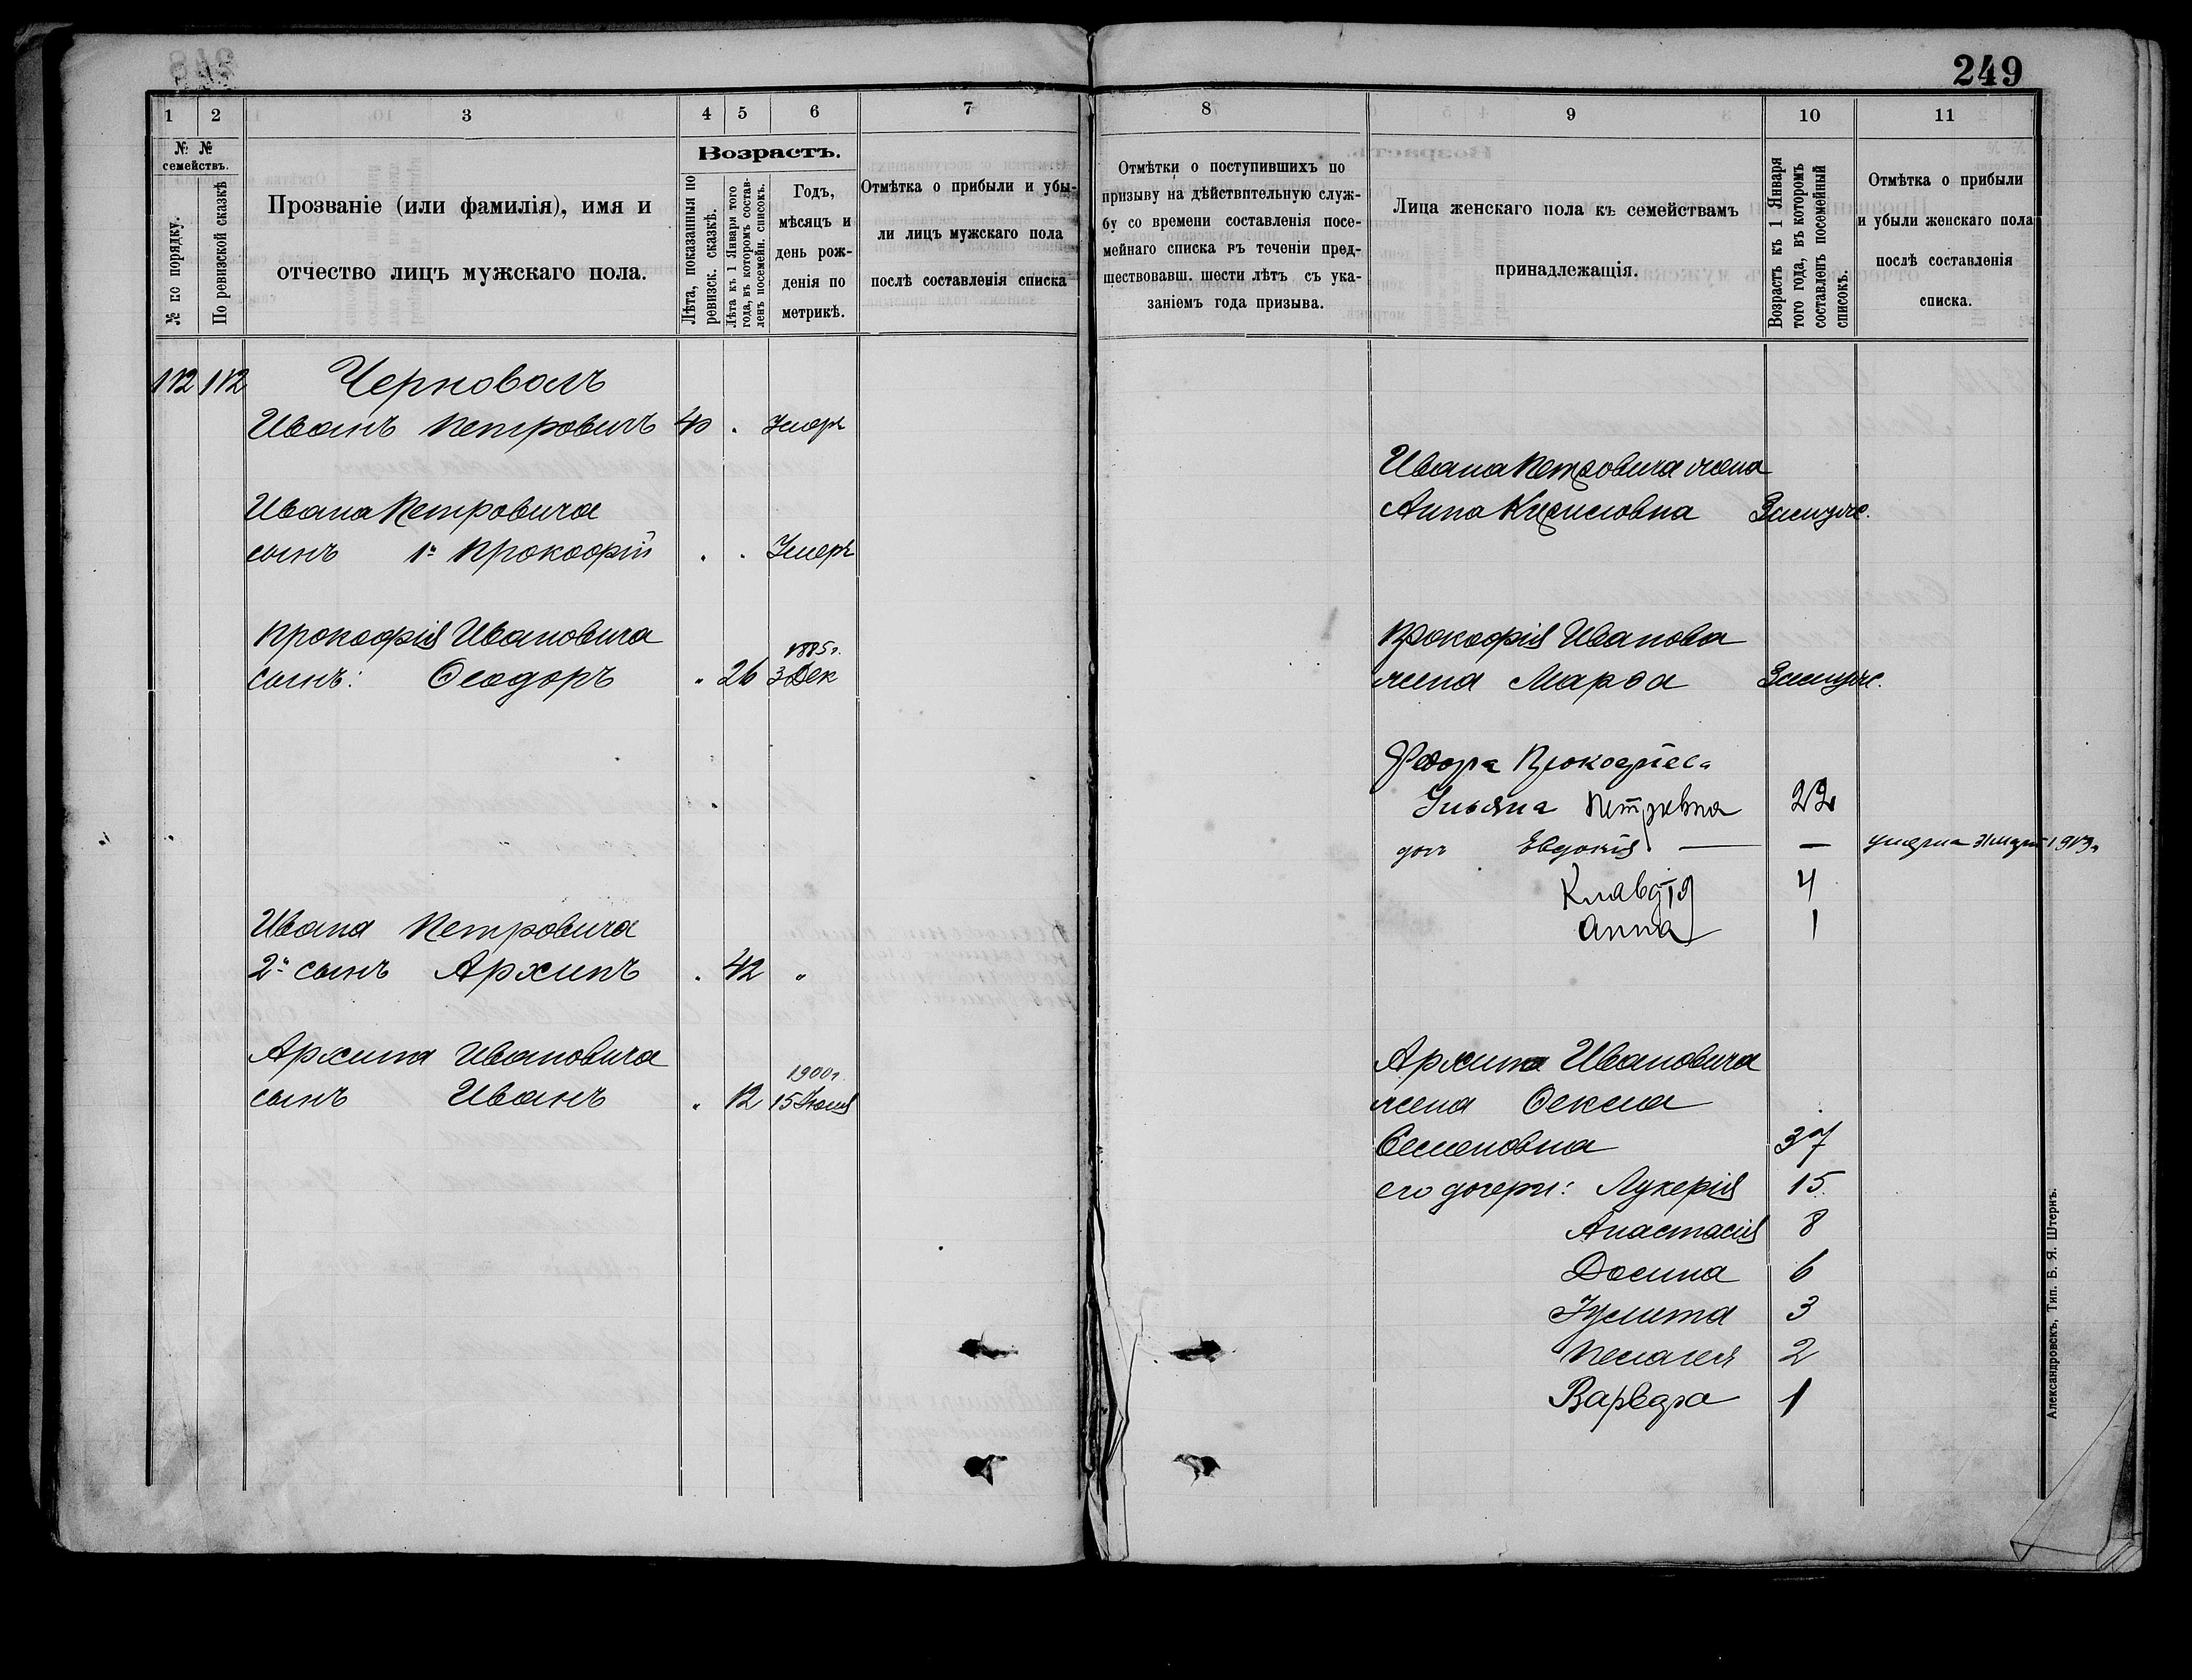 249
1
2
3
4
5
6
7
№ № семействъ.
№ по порядку.
По ревизской сказкѣ
Прозваніе (или фамилія), имя и
отчество лицъ мужскаго пола.
Возрастъ.
Лѣта, показанныя по
ревизск. сказкѣ.
Лѣта къ 1 Января того
года, въ которомъ состав-
ленъ посемейн. списокъ.
Годъ,
мѣсяцъ и
день рож-
денія по
метрикѣ.
Отмѣтка о прибыли и убы-
ли лицъ мужскаго пола
послѣ составленія списка
112 112 Черноволъ
Иванъ Петровичъ 40 . Умеръ
Ивана Петровича
сынъ 1й Прокофій . . Умеръ
Прокофія Ивановича
1885 г.
сынъ: Ѳеодоръ " 26 3 Дек
Ивана Петровича
2й сынъ Архипъ . 42 "
Архипа Ивановича
1900 г.
сынъ Иванъ " 12 15 Іюня
8
9
10
11
Отмѣтки о поступившихъ по
призыву на дѣйствительную служ-
бу со времени составленія посе-
мейнаго списка въ теченіи пред-
шествовавш. шести лѣтъ съ ука-
заніемъ года призыва.
Лица женскаго пола къ семействамъ
принадлежащія.
Возрастъ къ 1 Января
того года, въ которомъ
составленъ посемейный
списокъ.
Отмѣтка о прибыли
и убыли женскаго пола
послѣ составленія
списка.
Ивана Петровича жена
Анна Замуж.
Прокофія Иванова
жена Марѳа Замуж.
Федора Прокофіев.
Ульяна Петровна 22
доч Евдокія — — умерла 1913 г.
Клавдія 4
Анна 1
Архипа Ивановича
жена Ѳекла
Семеновна 37
его дочери: Лукерія 15
Анастасія 8
Домна 6
Іулита 3
Пелагея 2
Варвара 1
Александровскъ, Тип. Б. Я. Штернъ.